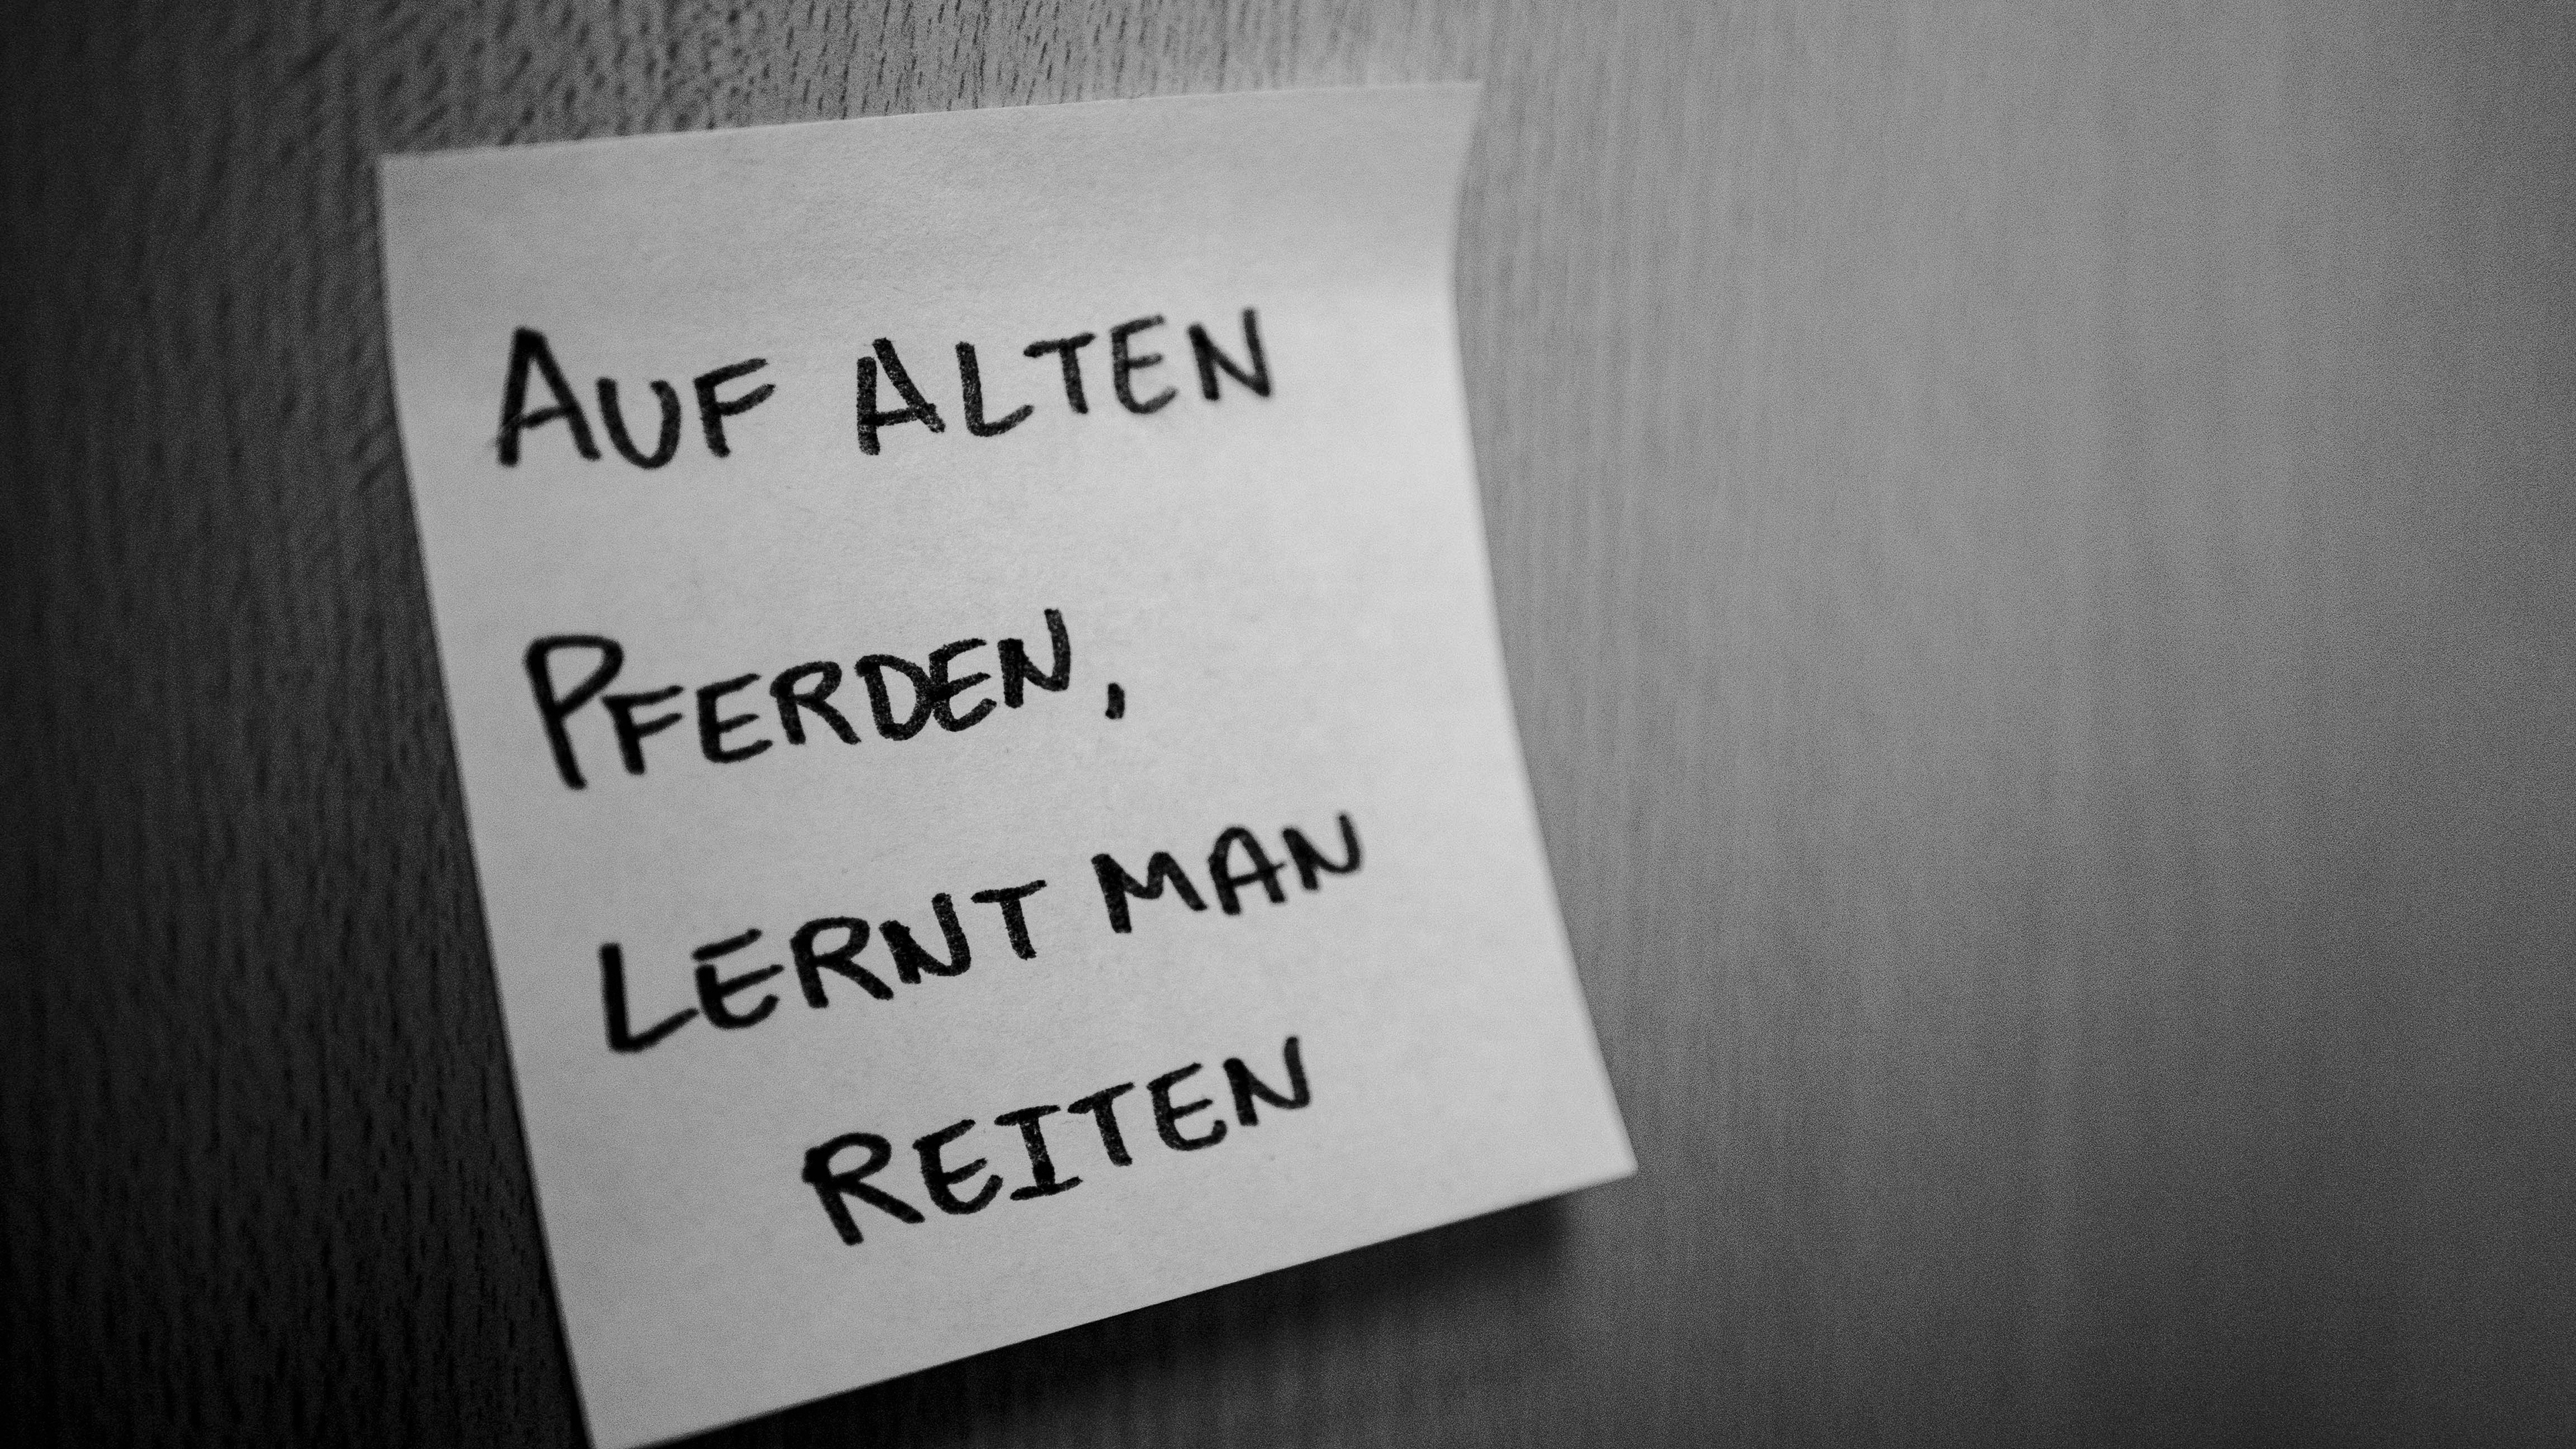 AUF ALTEN
PFERDEN,
LERNT MAN
REITEN